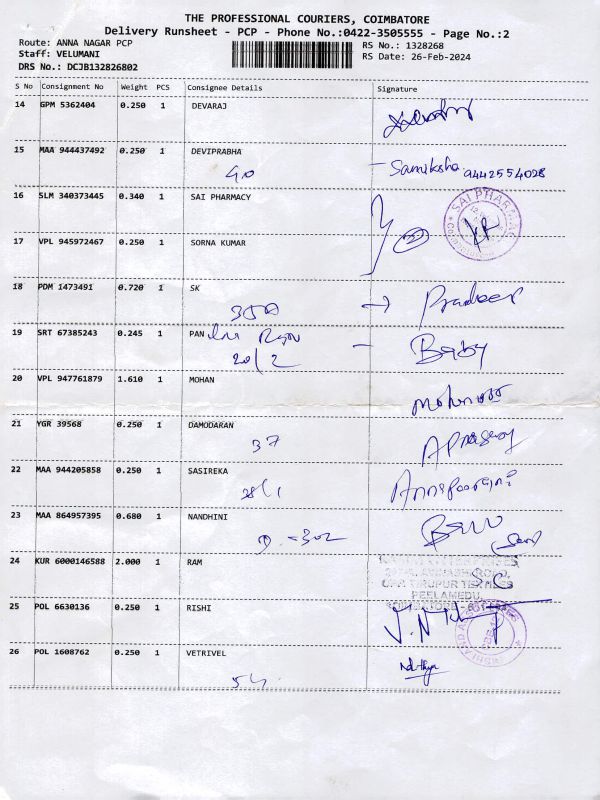 THE PROFESSIONAL COURIERS, COIMBATORE
Delivery Runsheet - PCP - Phone No.:0422-3505555 - Page No.:2
Route: ANNA NAGAR PCP
RS No.: 1328268
Staff: VELUMANI
RS Date: 26-Feb-2024
DRS No.: DCJB132826802
S No Consignment No Weight PCS Consignee Details Signature
14 GPM 5362404 0.250 1 DEVARAJ
15 MAA 944437492 0.250 1 DEVIPRABHA
Samiksha 9442554028
16 SLM 340373445 0.340 1 SAI PHARMACY
SAI PHARMACY
17 VPL 945972467 0.250 1 SORNA KUMAR
18 PDM 1473491 0.720 1 SK
Pradeep
19 SRT 67385243 0.245 1 PAN
20/2
Baby
20 VPL 947761879 1.610 1 MOHAN
21 YGR 39568 0.250 1 DAMODARAN
37
22 MAA 944205858 0.250 1 SASIREKA
Annapoorani
23 MAA 864957395 0.680 1 NANDHINI
24 KUR 6000146588 2.000 1 RAM
OPP. TIRUPUR TEXTILES
PEELAMEDU,
25 POL 6630136 0.250 1 RISHI
26 POL 1608762 0.250 1 VETRIVEL